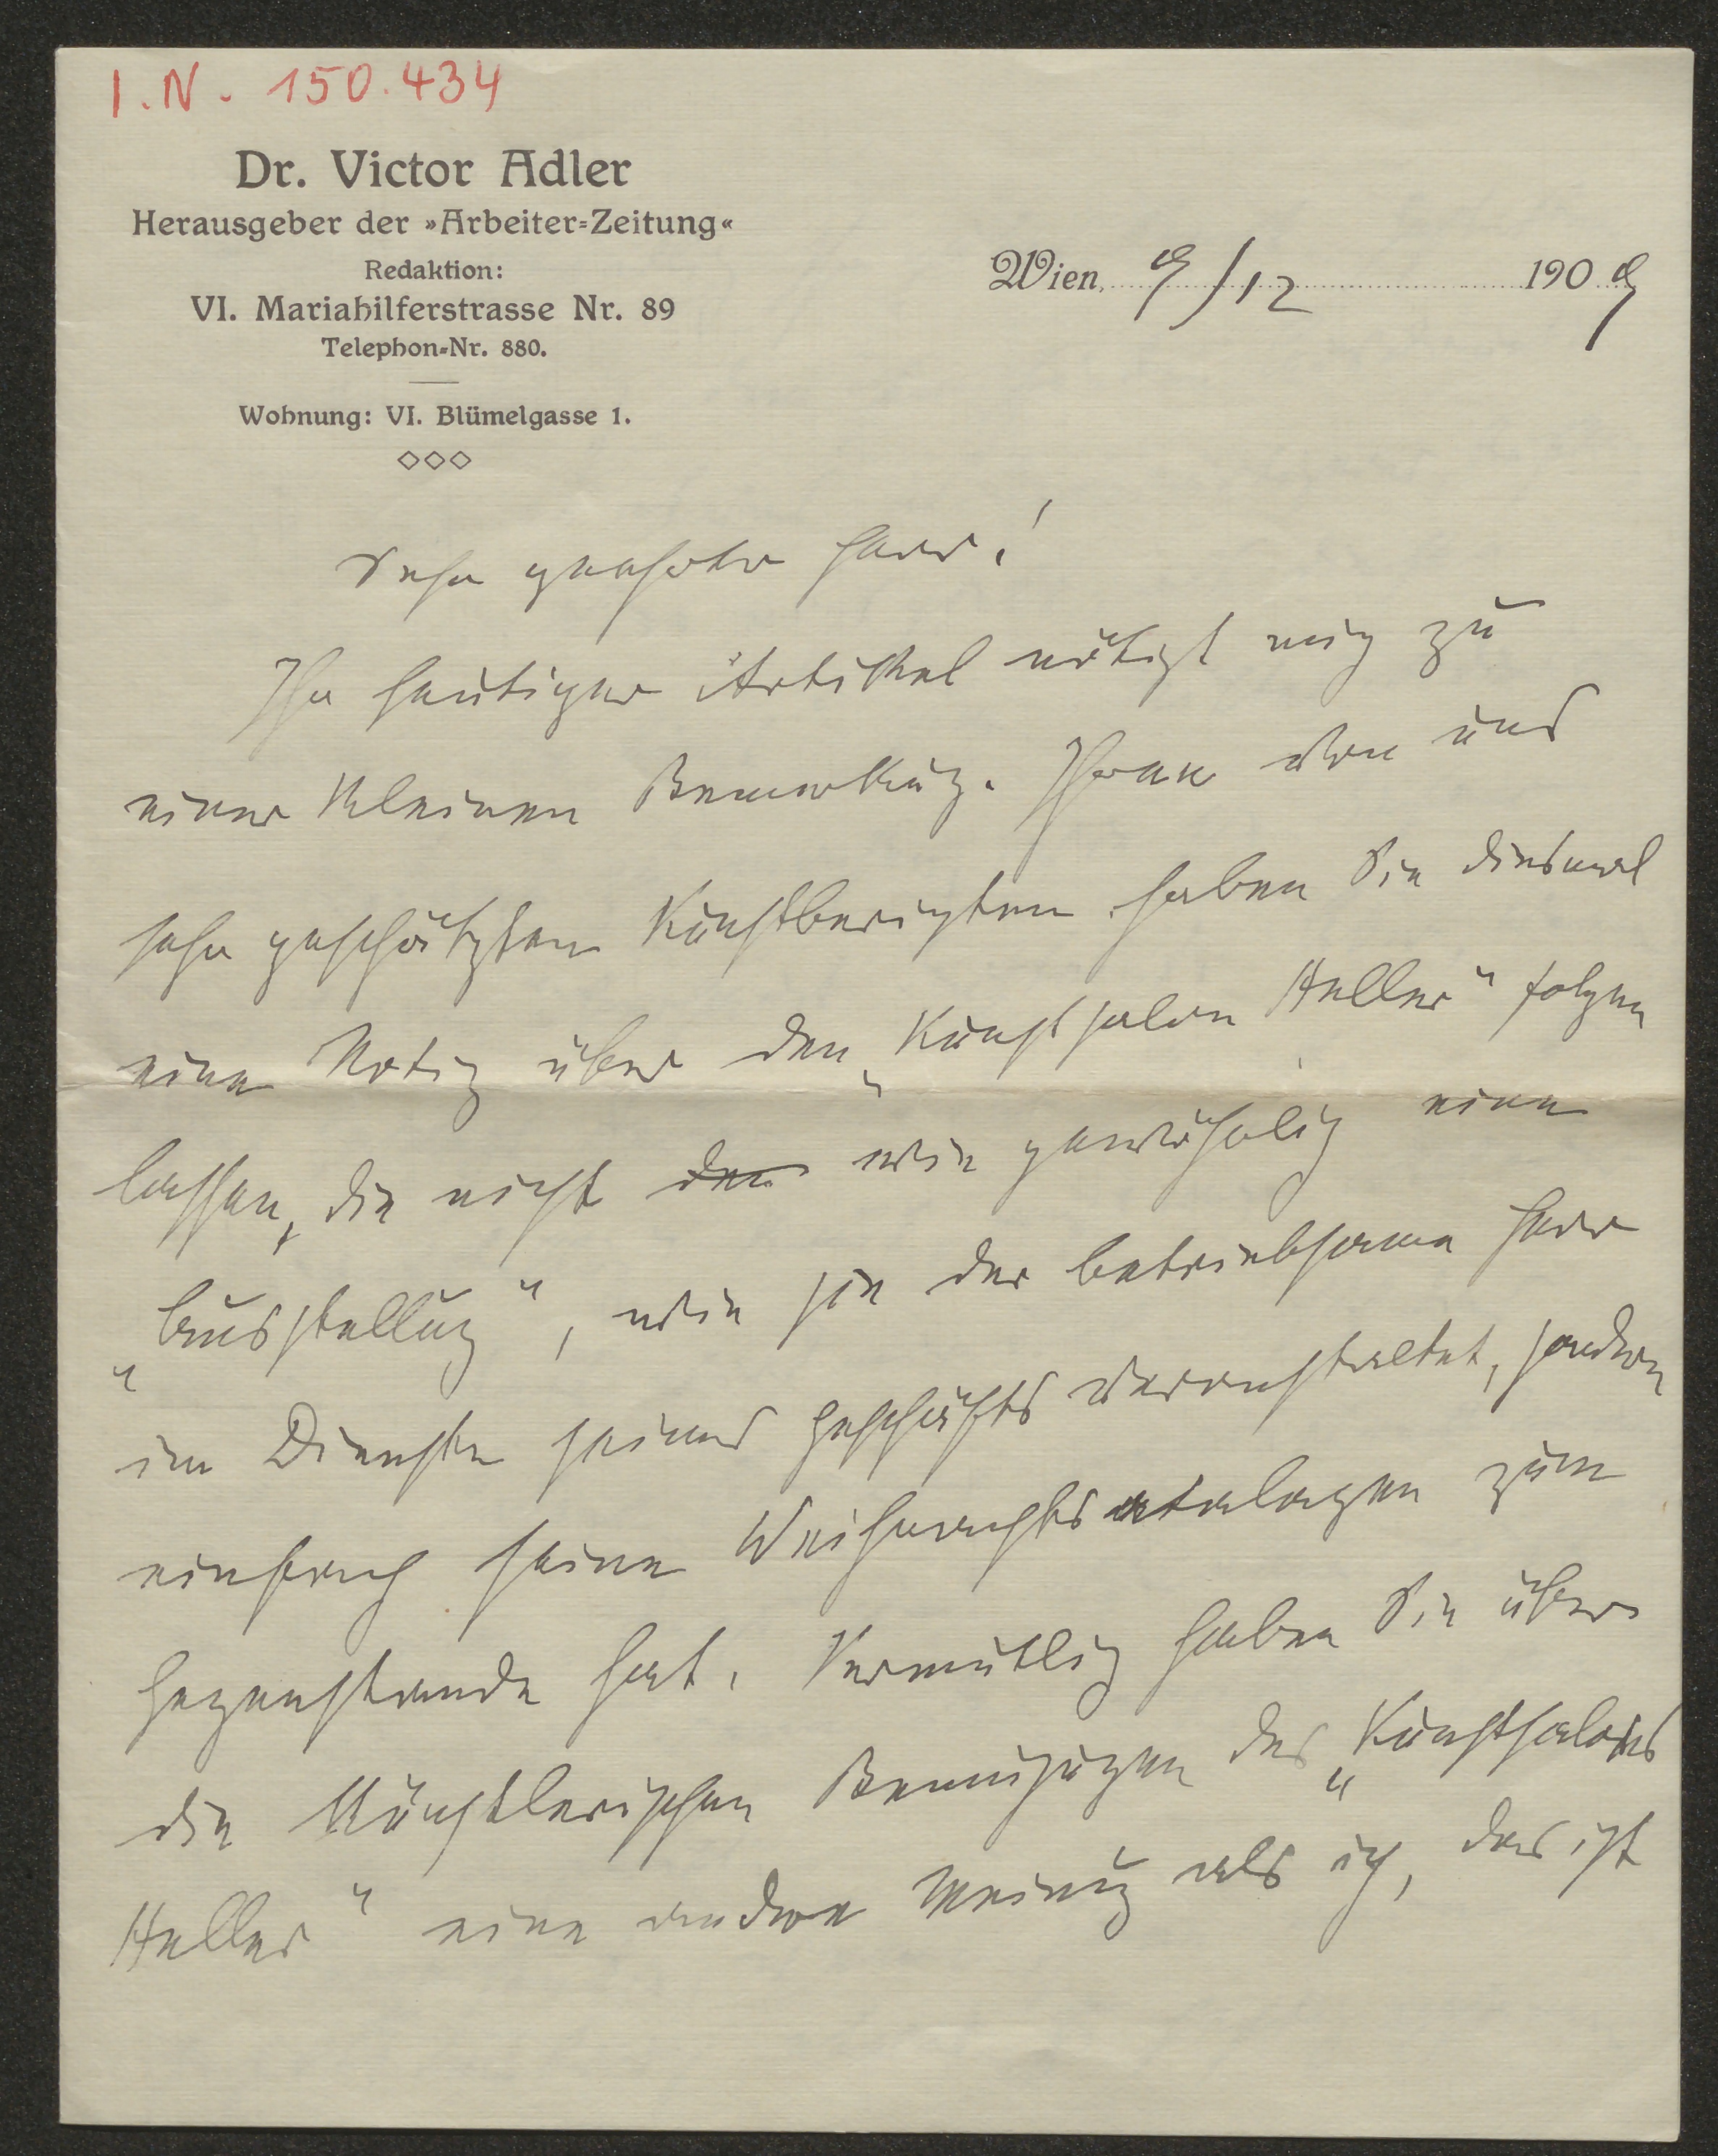 I.N. 150.434
Dr. Victor Adler
Herausgeber der »Arbeiter-Zeitung«
Redaktion:
VI. Mariahilferstrasse Nr. 89
Telephon-Nr. 880.
Wohnung: VI. Blümelgasse 1.
Wien, 9/12 1909
Sehr geehrter Herr!
Ihr heutiger Artikel nötigt mich zu
einer kleinen Bemerkung. Ihren von uns
sehr geschätzten Kunstberichten haben Sie diesmal
eine Notiz über den „Kunstsalon Heller“ folgen
lassen, die nicht den wie gewöhnlich eine
„Ausstellung“, wie sie der betriebsame Herr
im Dienste seines Geschäfts veranstaltet, sondern
einfach seine Weihnachtskatalogen zum
Gegenstande hat. Vermutlich haben Sie über
die künstlerischen Bemühungen des „Kunstsalons
Heller“ eine andere Meinung als ich, das ist